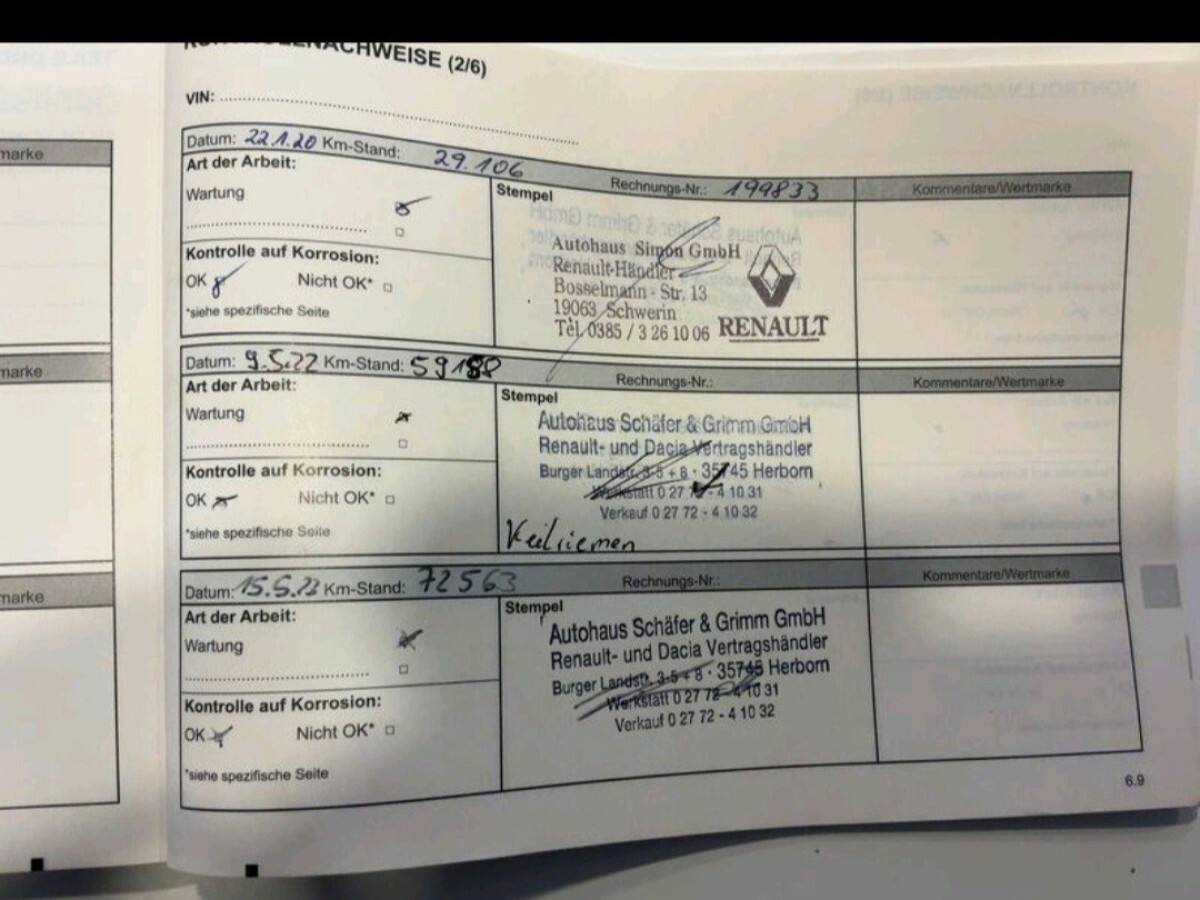 KONTROLLNACHWEISE (2/6)
VIN:
marke
Datum: 22.1.20 Km-Stand: 29.106
Rechnungs-Nr.: 199833
Kommentare/Wertmarke
Art der Arbeit:
Wartung
Kontrolle auf Korrosion:
OK Nicht OK*
*siehe spezifische Seite
Stempel
Autohaus Simon GmbH
Renault-Händler
Bosselmann - Str. 13
19063 Schwerin
Tel. 0385 / 3 26 10 06
RENAULT
marke
Datum: 9.5.22 Km-Stand: 59188
Rechnungs-Nr.:
Kommentare/Wertmarke
Art der Arbeit:
Wartung
Kontrolle auf Korrosion:
OK Nicht OK*
*siehe spezifische Seite
Stempel
Autohaus Schäfer & Grimm GmbH
Renault- und Dacia Vertragshändler
Burger Landstr. 3-5 + 8 · 35745 Herborn
Werkstatt 0 27 72 - 4 10 31
Verkauf 0 27 72 - 4 10 32
Keilriemen
marke
Datum: 15.5.23 Km-Stand: 72563
Rechnungs-Nr.:
Kommentare/Wertmarke
Art der Arbeit:
Wartung
Kontrolle auf Korrosion:
OK Nicht OK*
*siehe spezifische Seite
Stempel
Autohaus Schäfer & Grimm GmbH
Renault- und Dacia Vertragshändler
Burger Landstr. 3-5 + 8 · 35745 Herborn
Werkstatt 0 27 72 - 4 10 31
Verkauf 0 27 72 - 4 10 32
6.9